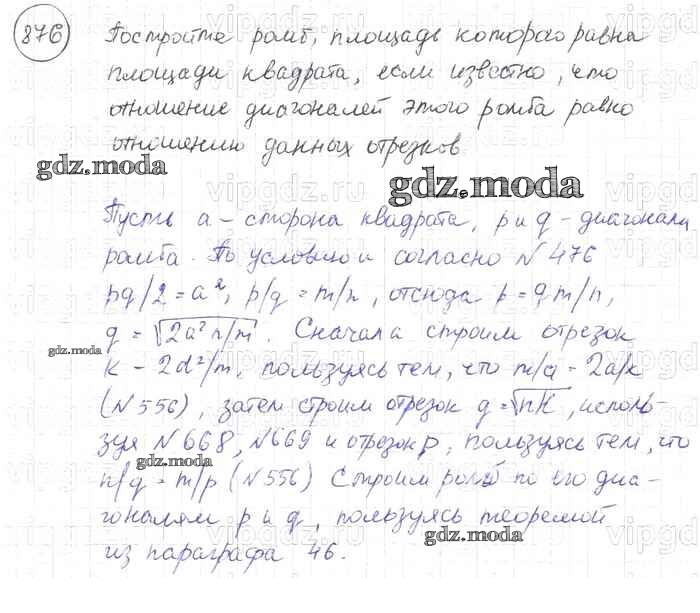 876
Постройте ромб, площадь которого равна
площади квадрата, если известно, что
отношение диагоналей этого ромба равно
отношению данных отрезков.
gdz.moda
gdz.moda
Пусть a – сторона квадрата, p и q – диагонали
ромба. По условию и согласно №476
pq/2 = a², p/q = m/n, отсюда p = qm/n,
q = √2a²n/m. Сначала строим отрезок
gdz.moda
k – 2d²/m, пользуясь тем, что m/a – 2a/k
(№556), затем строим отрезок q = √nk, исполь-
зуя №668, №669 и отрезок p, пользуясь тем, что
gdz.moda
n/q = m/p (№556) Строим ромб по его диа-
гоналям p и q, пользуясь теоремой
gdz.moda
из параграфа 46.